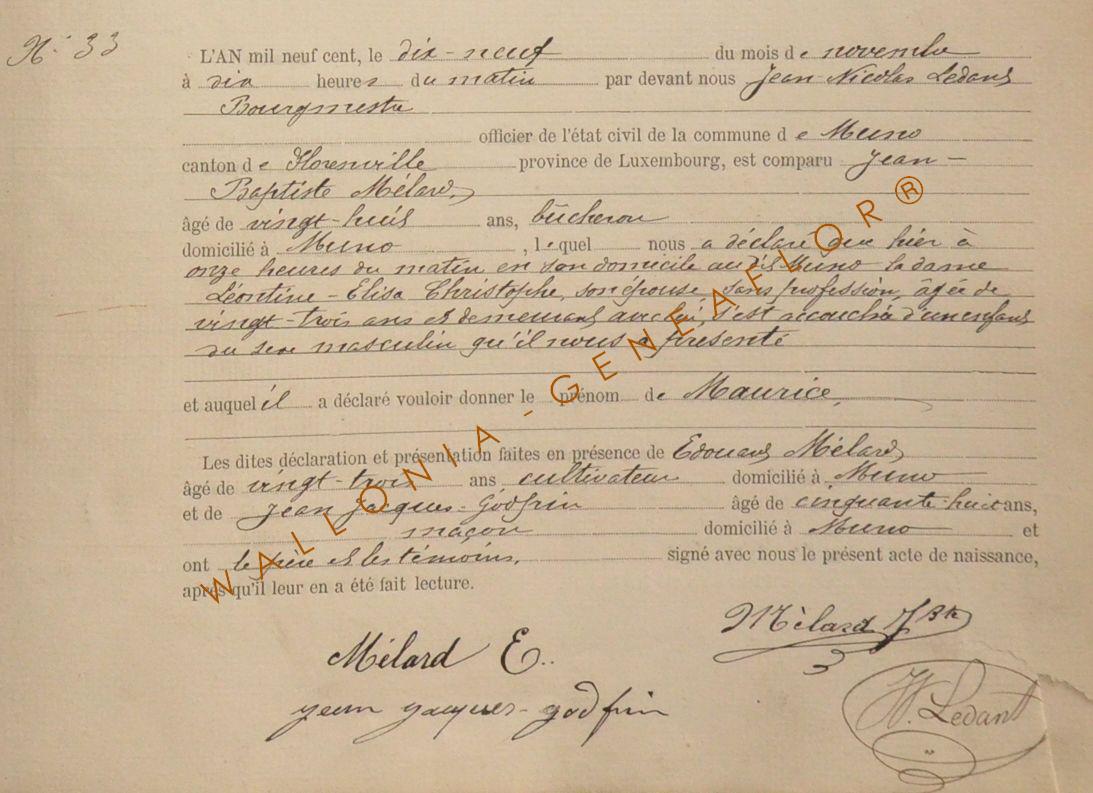 N° 33
L'AN mil neuf cent, le dix-neuf du mois de novembre
à dix heures du matin par devant nous Jean Nicolas Ledant
Bourgmestre
officier de l'état civil de la commune de Muno
canton de Florenville province de Luxembourg, est comparu Jean-
Baptiste Mélard,
âgé de vingt-huit ans, bûcheron
domicilié à Muno, lequel nous a déclaré que hier à
onze heures du matin en son domicile au dit Muno la dame
Léontine-Elisa Christophe, son épouse, sans profession, âgée de
vingt-trois ans et demeurant avec lui, s'est accouchée d'un enfant
du sexe masculin qu'il nous a présenté
et auquel il a déclaré vouloir donner le prénom de Maurice,
Les dites déclaration et présentation faites en présence de Edouard Mélard
âgé de vingt-trois ans cultivateur domicilié à Muno
et de Jean Jacques-Godfrin âgé de cinquante-huit ans,
maçon domicilié à Muno et
ont le père et les témoins, signé avec nous le présent acte de naissance,
après qu'il leur en a été fait lecture.
Mélard J Bte
Mélard E..
jean jacques-godfrin
Ledant
WALLONIA-GENEAFLOR®